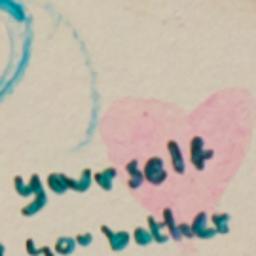 yourself
you bother